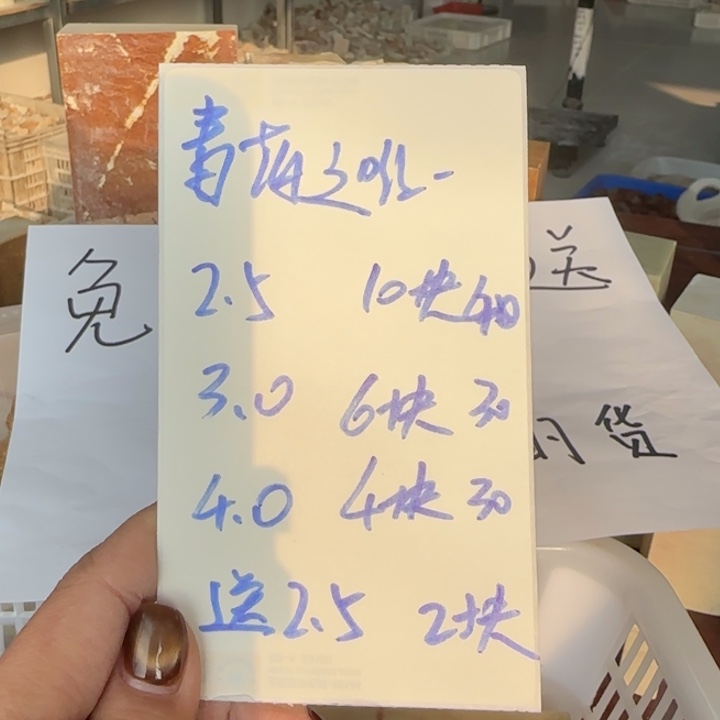 青海之恋-
2.5 10块 40
3.0 6块 30
4.0 4块 30
送 2.5 2块
免
送
的货